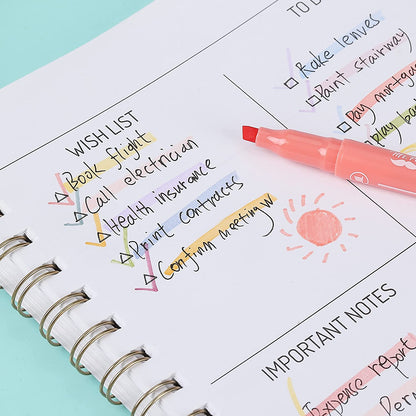 WISH LIST
Book flight
Call electrician
Health insurance
Print contracts
Confirm meeting w
TO D
Rake leaves
Paint stairway
Pay mortgage
play
IMPORTANT NOTES
Expense report